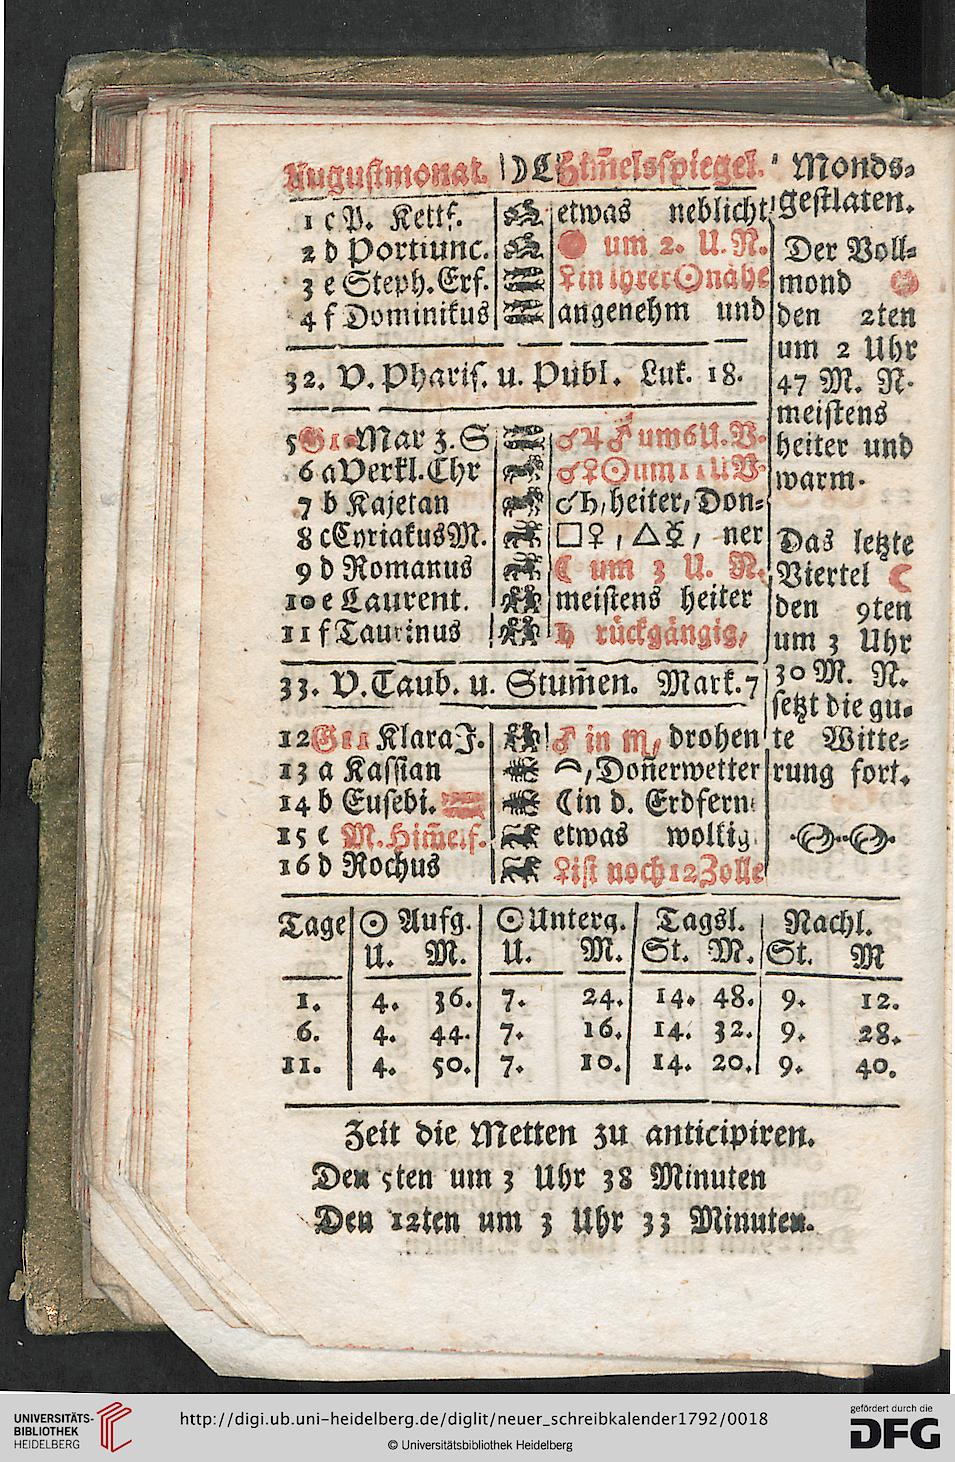 Augustmonat. ☽☾ Him̄elsspiegel.
1 c P. Kettf. etwas neblicht
2 d Portiunc. um 2. U. N.
3 e Steph. Erf. ♀ in ihrer ☉ nähe
4 f Dominikus angenehm und
32. V. Pharis. u. Publ. Luk. 18.
5 G 10 Mar z. S ☌ ♃ ♂ um 6 U. V.
6 a Verkl. Chr ☌ ♀ ☉ um 11 U V.
7 b Kajetan ☌ ♄, heiter, Don-
8 c Cyriakus M. □ ♀, △ ☿, ner
9 d Romanus ☾ um 3 U. N.
10 e Laurent. meistens heiter
11 f Taurinus ♄ rückgängig,
33. V. Taub. u. Stum̄en. Mark. 7
12 G 11 Klara J. ♂ in ♏, drohen
13 a Kassian , Don̄erwetter
14 b Eusebi. ☾ in d. Erdfern
15 c M. Him̄elf. etwas wolkig
16 d Rochus ♀ ist noch 12 Zolle
Monds-
gestlaten.
Der Voll-
mond
den 2ten
um 2 Uhr
47 M. N.
meistens
heiter und
warm.
Das letzte
Viertel ☾
den 9ten
um 3 Uhr
30 M. N.
setzt die gu-
te Witte-
rung fort.
Tage ☉ Aufg. ☉ Unterg. Tagsl. Nachl.
U. M. U. M. St. M. St. M
1. 4. 36. 7. 24. 14. 48. 9. 12.
6. 4. 44. 7. 16. 14. 32. 9. 28.
11. 4. 50. 7. 10. 14. 20. 9. 40.
Zeit die Metten zu anticipiren.
Den 5ten um 3 Uhr 38 Minuten
Den 12ten um 3 Uhr 33 Minuten.
UNIVERSITÄTS-
BIBLIOTHEK
HEIDELBERG
http://digi.ub.uni-heidelberg.de/diglit/neuer_schreibkalender1792/0018
© Universitätsbibliothek Heidelberg
gefördert durch die
DFG